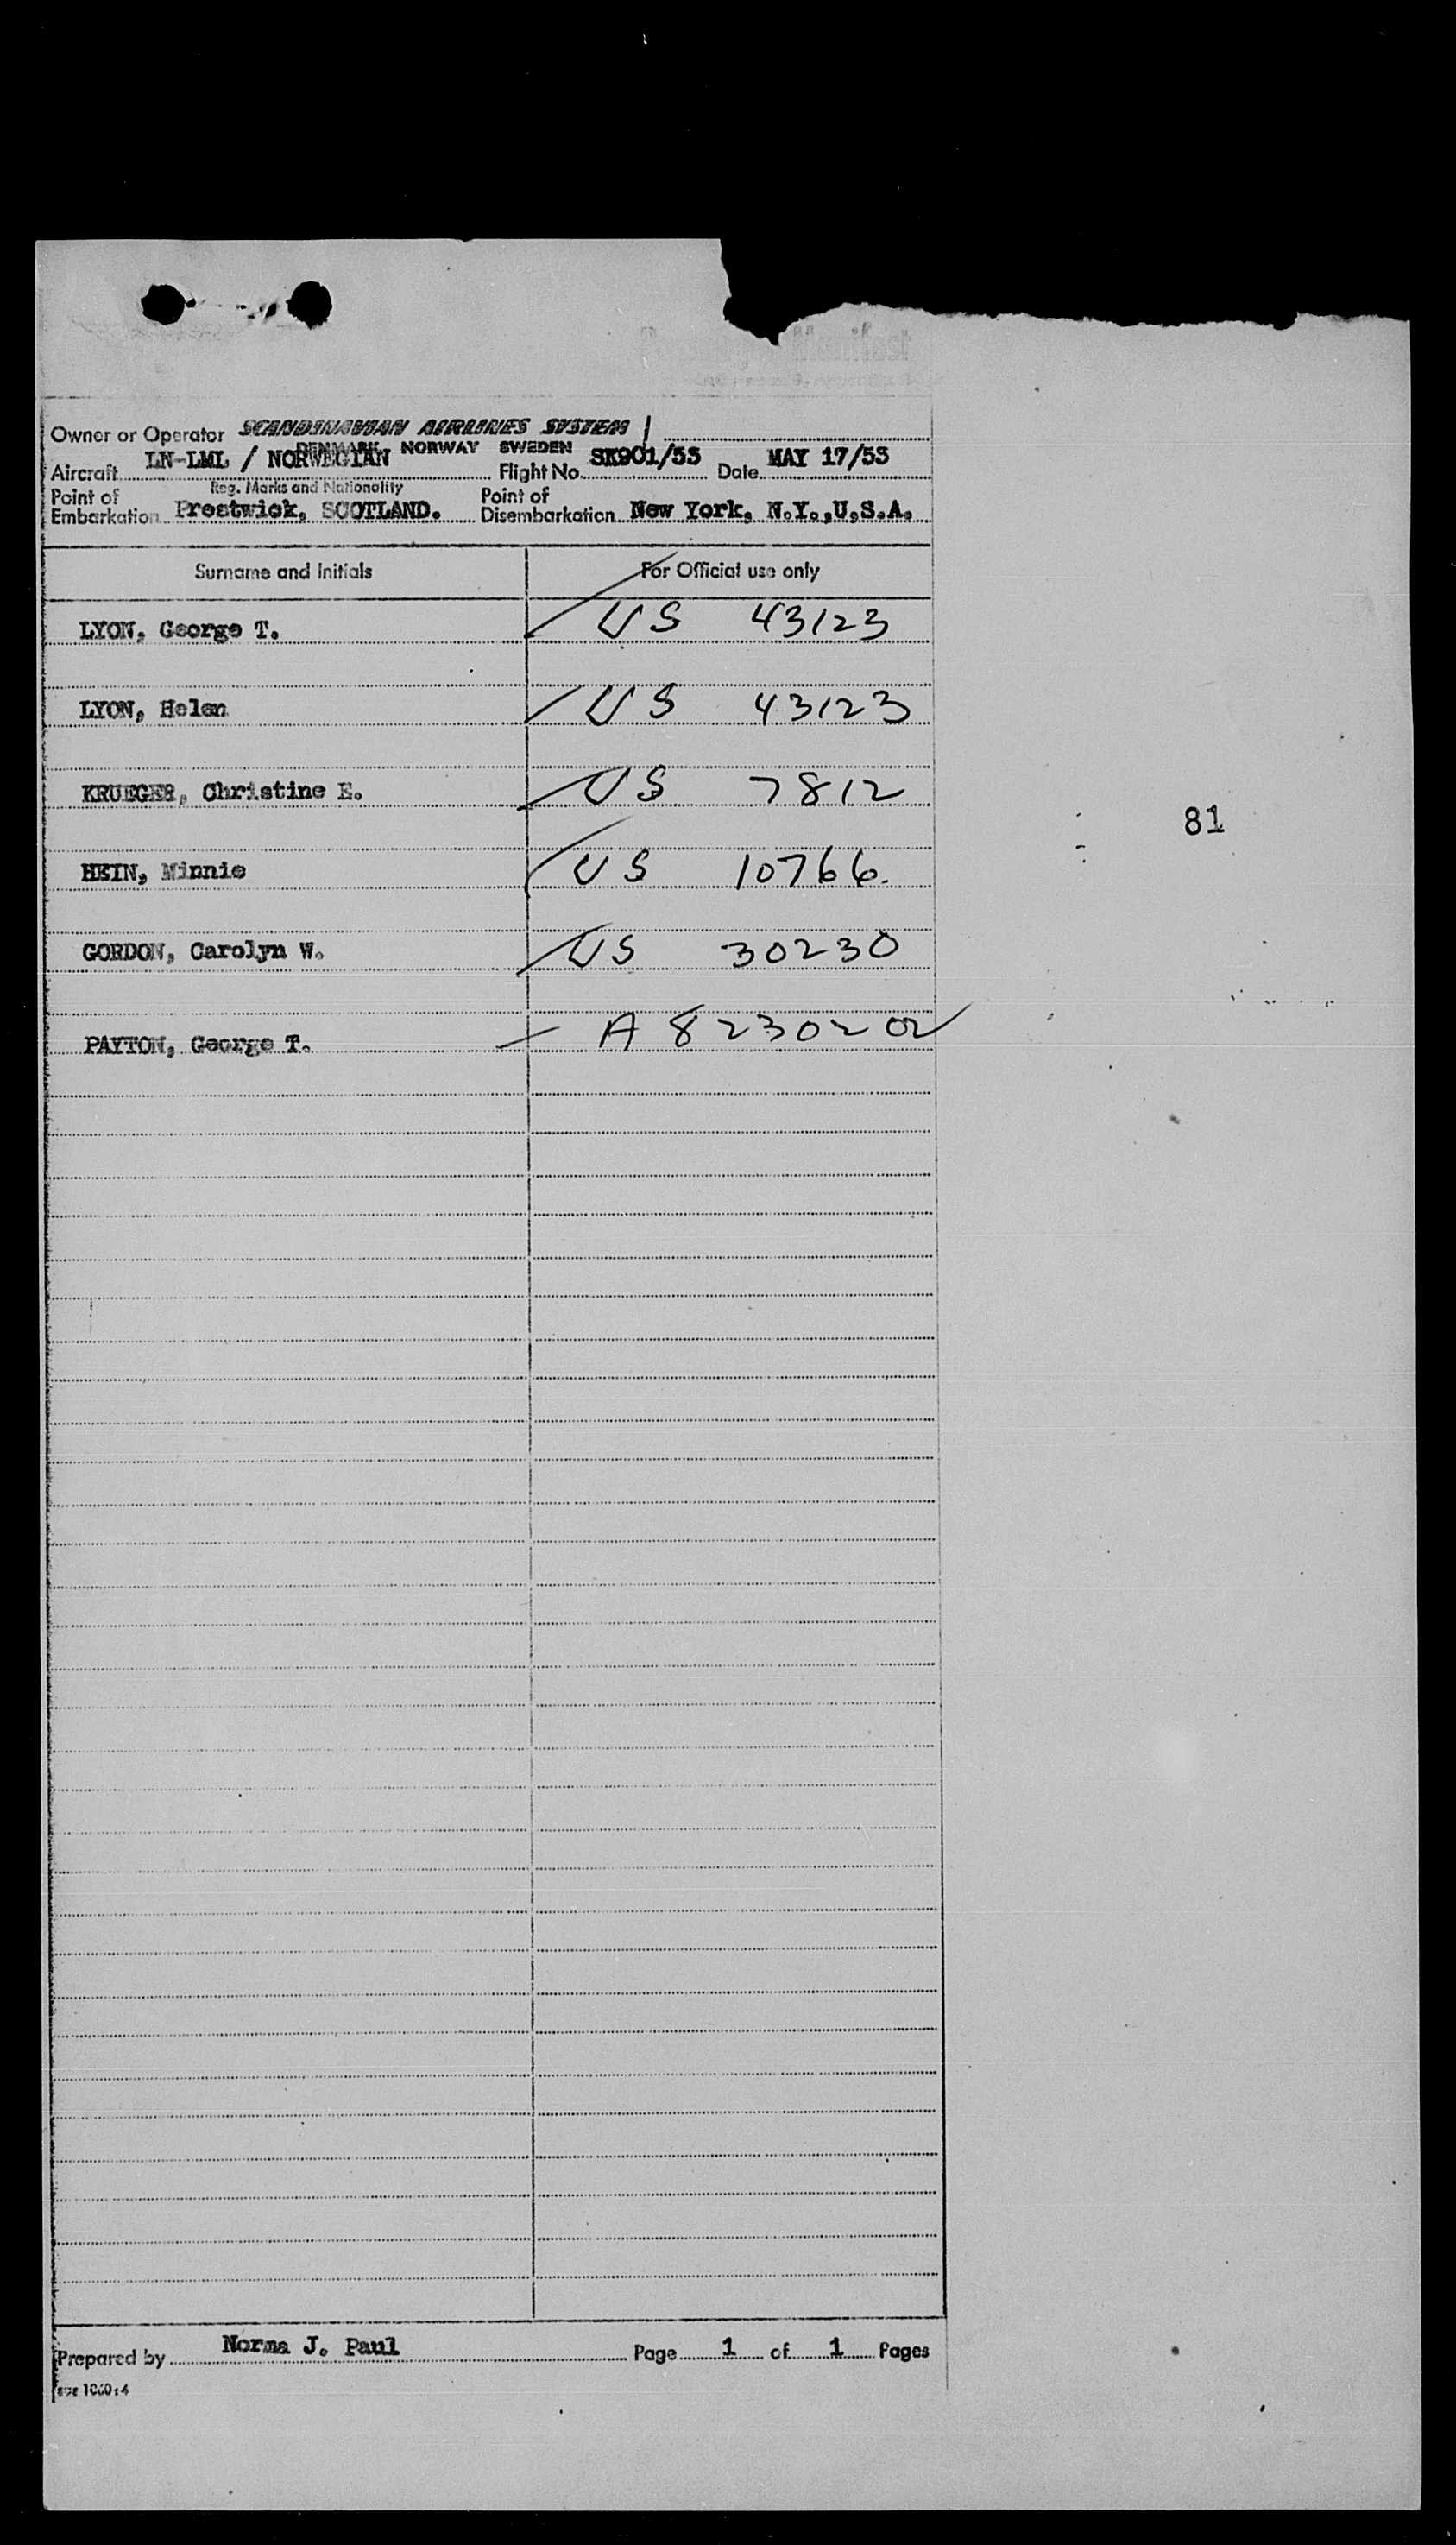 Owner or Operator SCANDINAVIAN AIRLINES SYSTEM
DENMARK NORWAY SWEDEN
Aircraft LN-LML / NORWEGIAN Flight No. SK901/53 Date MAY 17/53
Reg. Marks and Nationality
Point of Embarkation Prestwick, SCOTLAND. Point of Disembarkation New York, N.Y.,U.S.A.
Surname and Initials For Official use only
LYON, George T. US 43123
LYON, Helen US 43123
KRUEGER, Christine E. US 7812
81
HEIN, Minnie US 10766.
GORDON, Carolyn W. US 30230
PAYTON, George T. A 8230202
Prepared by Norma J. Paul Page 1 of 1 Pages